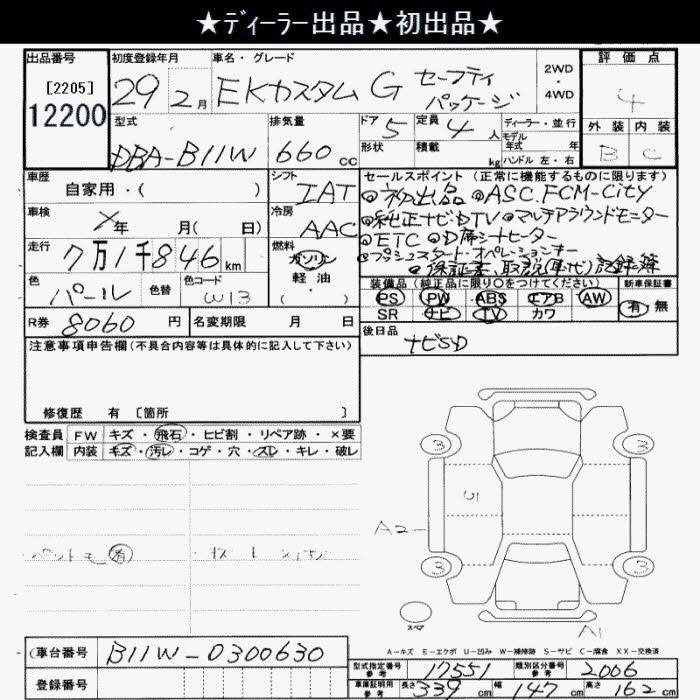 ★ディーラー出品★初出品★
出品番号
[2205]
12200
初度登録年月
29 2月
車名・グレード
EKカスタム G セーフティパッケージ
2WD・4WD
評価点
4
外装 内装
B C
型式
DBA-B11W
排気量
660 cc
ドア 5
形状
定員 4人
積載 kg
ディーラー・並行
モデル年式 年
ハンドル 左・右
車歴
自家用・( )
シフト
IAT
車検
メ年 月( 日)
冷房
AAC
走行
7万1千846 km
燃料
ガソリン
軽油
( ・ )
色
パール
色替
色コード
W13
R券 8060 円
名変期限 月 日
セールスポイント (正常に機能するものに限ります)
◎初出品 ◎ASC.FCM-City
◎純正ナビDTV ◎マルチアラウンドモニター
◎ETC ◎D席シートヒーター
◎プッシュスタート・オペレーションキー
◎保証書、取説(車・ナビ)記録簿
装備品 (純正品に限り○をつけてください)
PS PW ABS エアB AW
SR ナビ TV カワ
新車保証書
有・無
後日品
ナビSD
注意事項申告欄 (不具合内容等は具体的に記入して下さい)
修復歴 有 [箇所 ]
検査員 FW キズ・飛石・ヒビ割・リペア跡・×要
記入欄 内装 キズ・汚レ・コゲ・穴・スレ・キレ・破レ
有
3 3
S
A2
3 3
スペア
A1
A-キズ E-エクボ U-凹み W-補修跡 S-サビ C-腐食 XX-交換済
(車台番号 B11W-0300630
登録番号
型式指定番号 参考 17551
類別区分番号 参考 2006
車庫証明用 参考 長さ 339 cm 幅 147 cm 高さ 162 cm